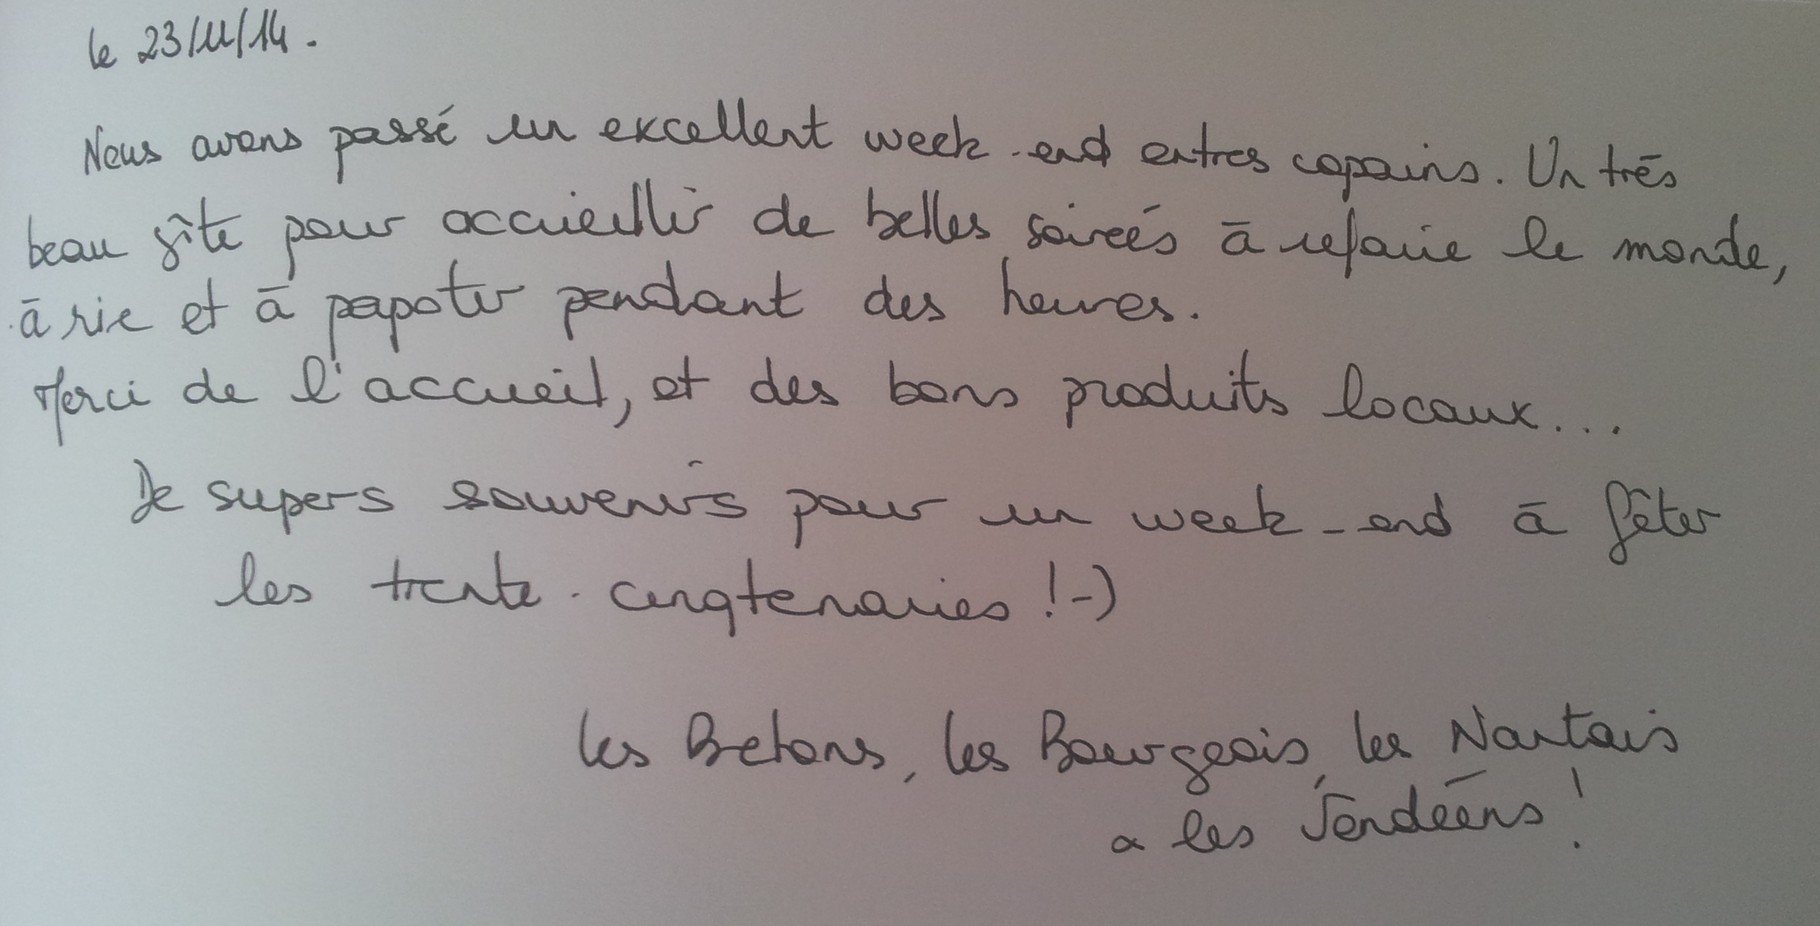 le 23/11/14.
Nous avons passé un excellent week-end entres copains. Un très
beau gîte pour accuieillir de belles soireés à refaire le monde,
à rire et à papoter pendant des heures.
Merci de l'accueil, et des bons produits locaux...
De supers souvenirs pour un week-end à fêter
les trente-cinqtenaires !-)
les Bretons, les Bourgeois, les Nantais
& les Vendéens !